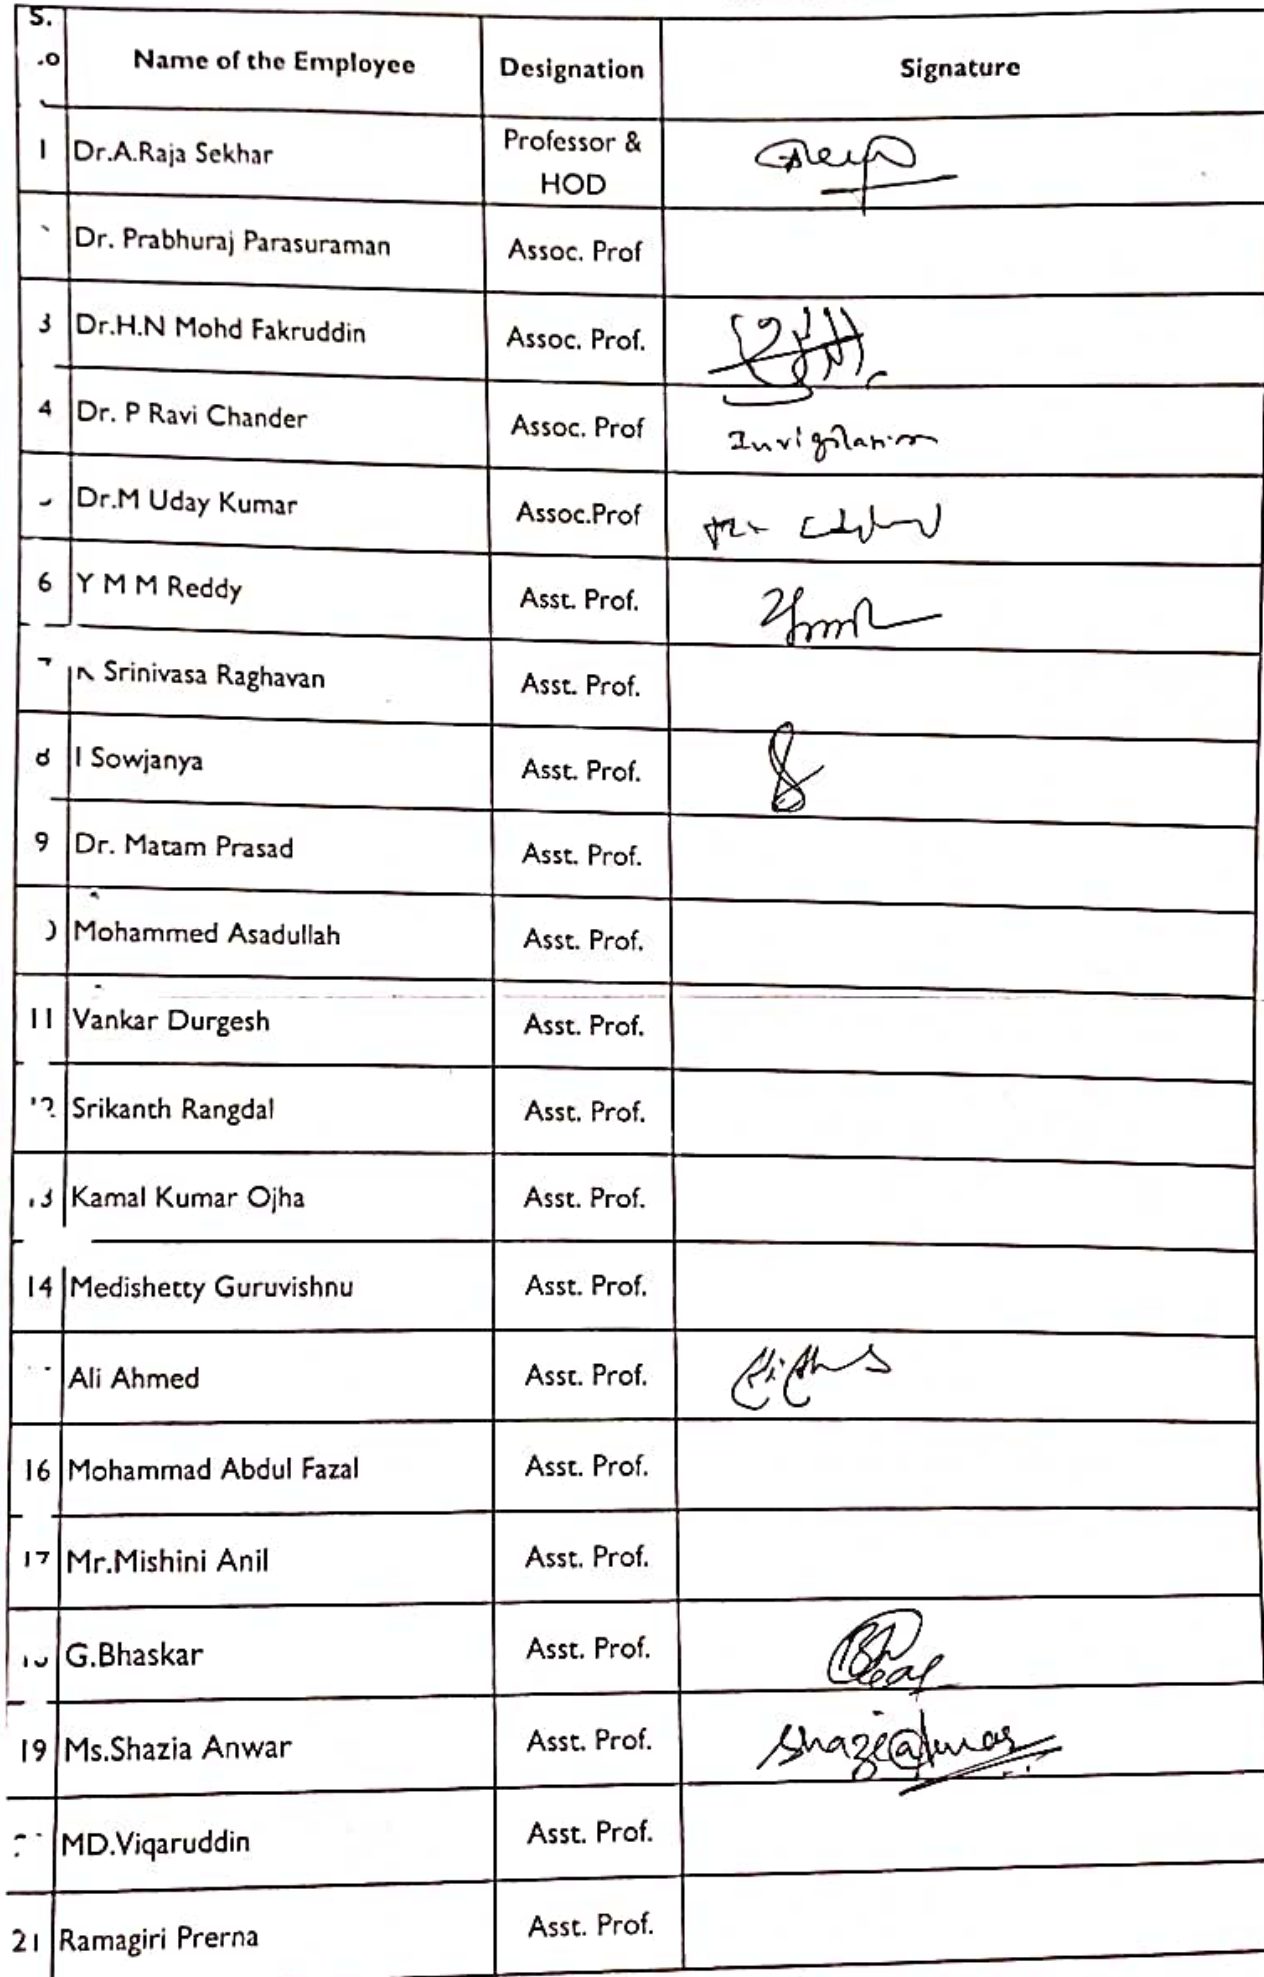 S.
.o Name of the Employee Designation Signature
1 Dr.A.Raja Sekhar Professor & HOD
Dr. Prabhuraj Parasuraman Assoc. Prof
3 Dr.H.N Mohd Fakruddin Assoc. Prof.
4 Dr. P Ravi Chander Assoc. Prof Invigilation
Dr.M Uday Kumar Assoc.Prof
6 Y M M Reddy Asst. Prof.
7 K Srinivasa Raghavan Asst. Prof.
8 I Sowjanya Asst. Prof.
9 Dr. Matam Prasad Asst. Prof.
Mohammed Asadullah Asst. Prof.
11 Vankar Durgesh Asst. Prof.
12 Srikanth Rangdal Asst. Prof.
13 Kamal Kumar Ojha Asst. Prof.
14 Medishetty Guruvishnu Asst. Prof.
Ali Ahmed Asst. Prof.
16 Mohammad Abdul Fazal Asst. Prof.
17 Mr.Mishini Anil Asst. Prof.
G.Bhaskar Asst. Prof.
19 Ms.Shazia Anwar Asst. Prof.
MD.Viqaruddin Asst. Prof.
21 Ramagiri Prerna Asst. Prof.